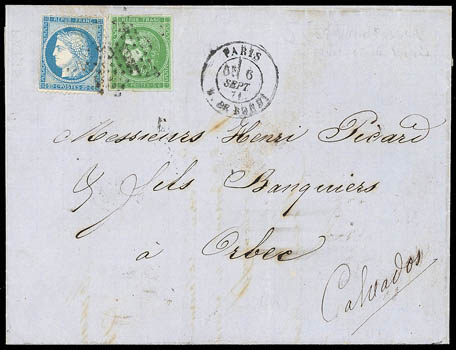 REPUB. FRANC.
REPUB. FRANC.
PARIS
6
SEPT.
71
Messieurs Henri Picard
& fils Banquiers
à Orbec
Calvados